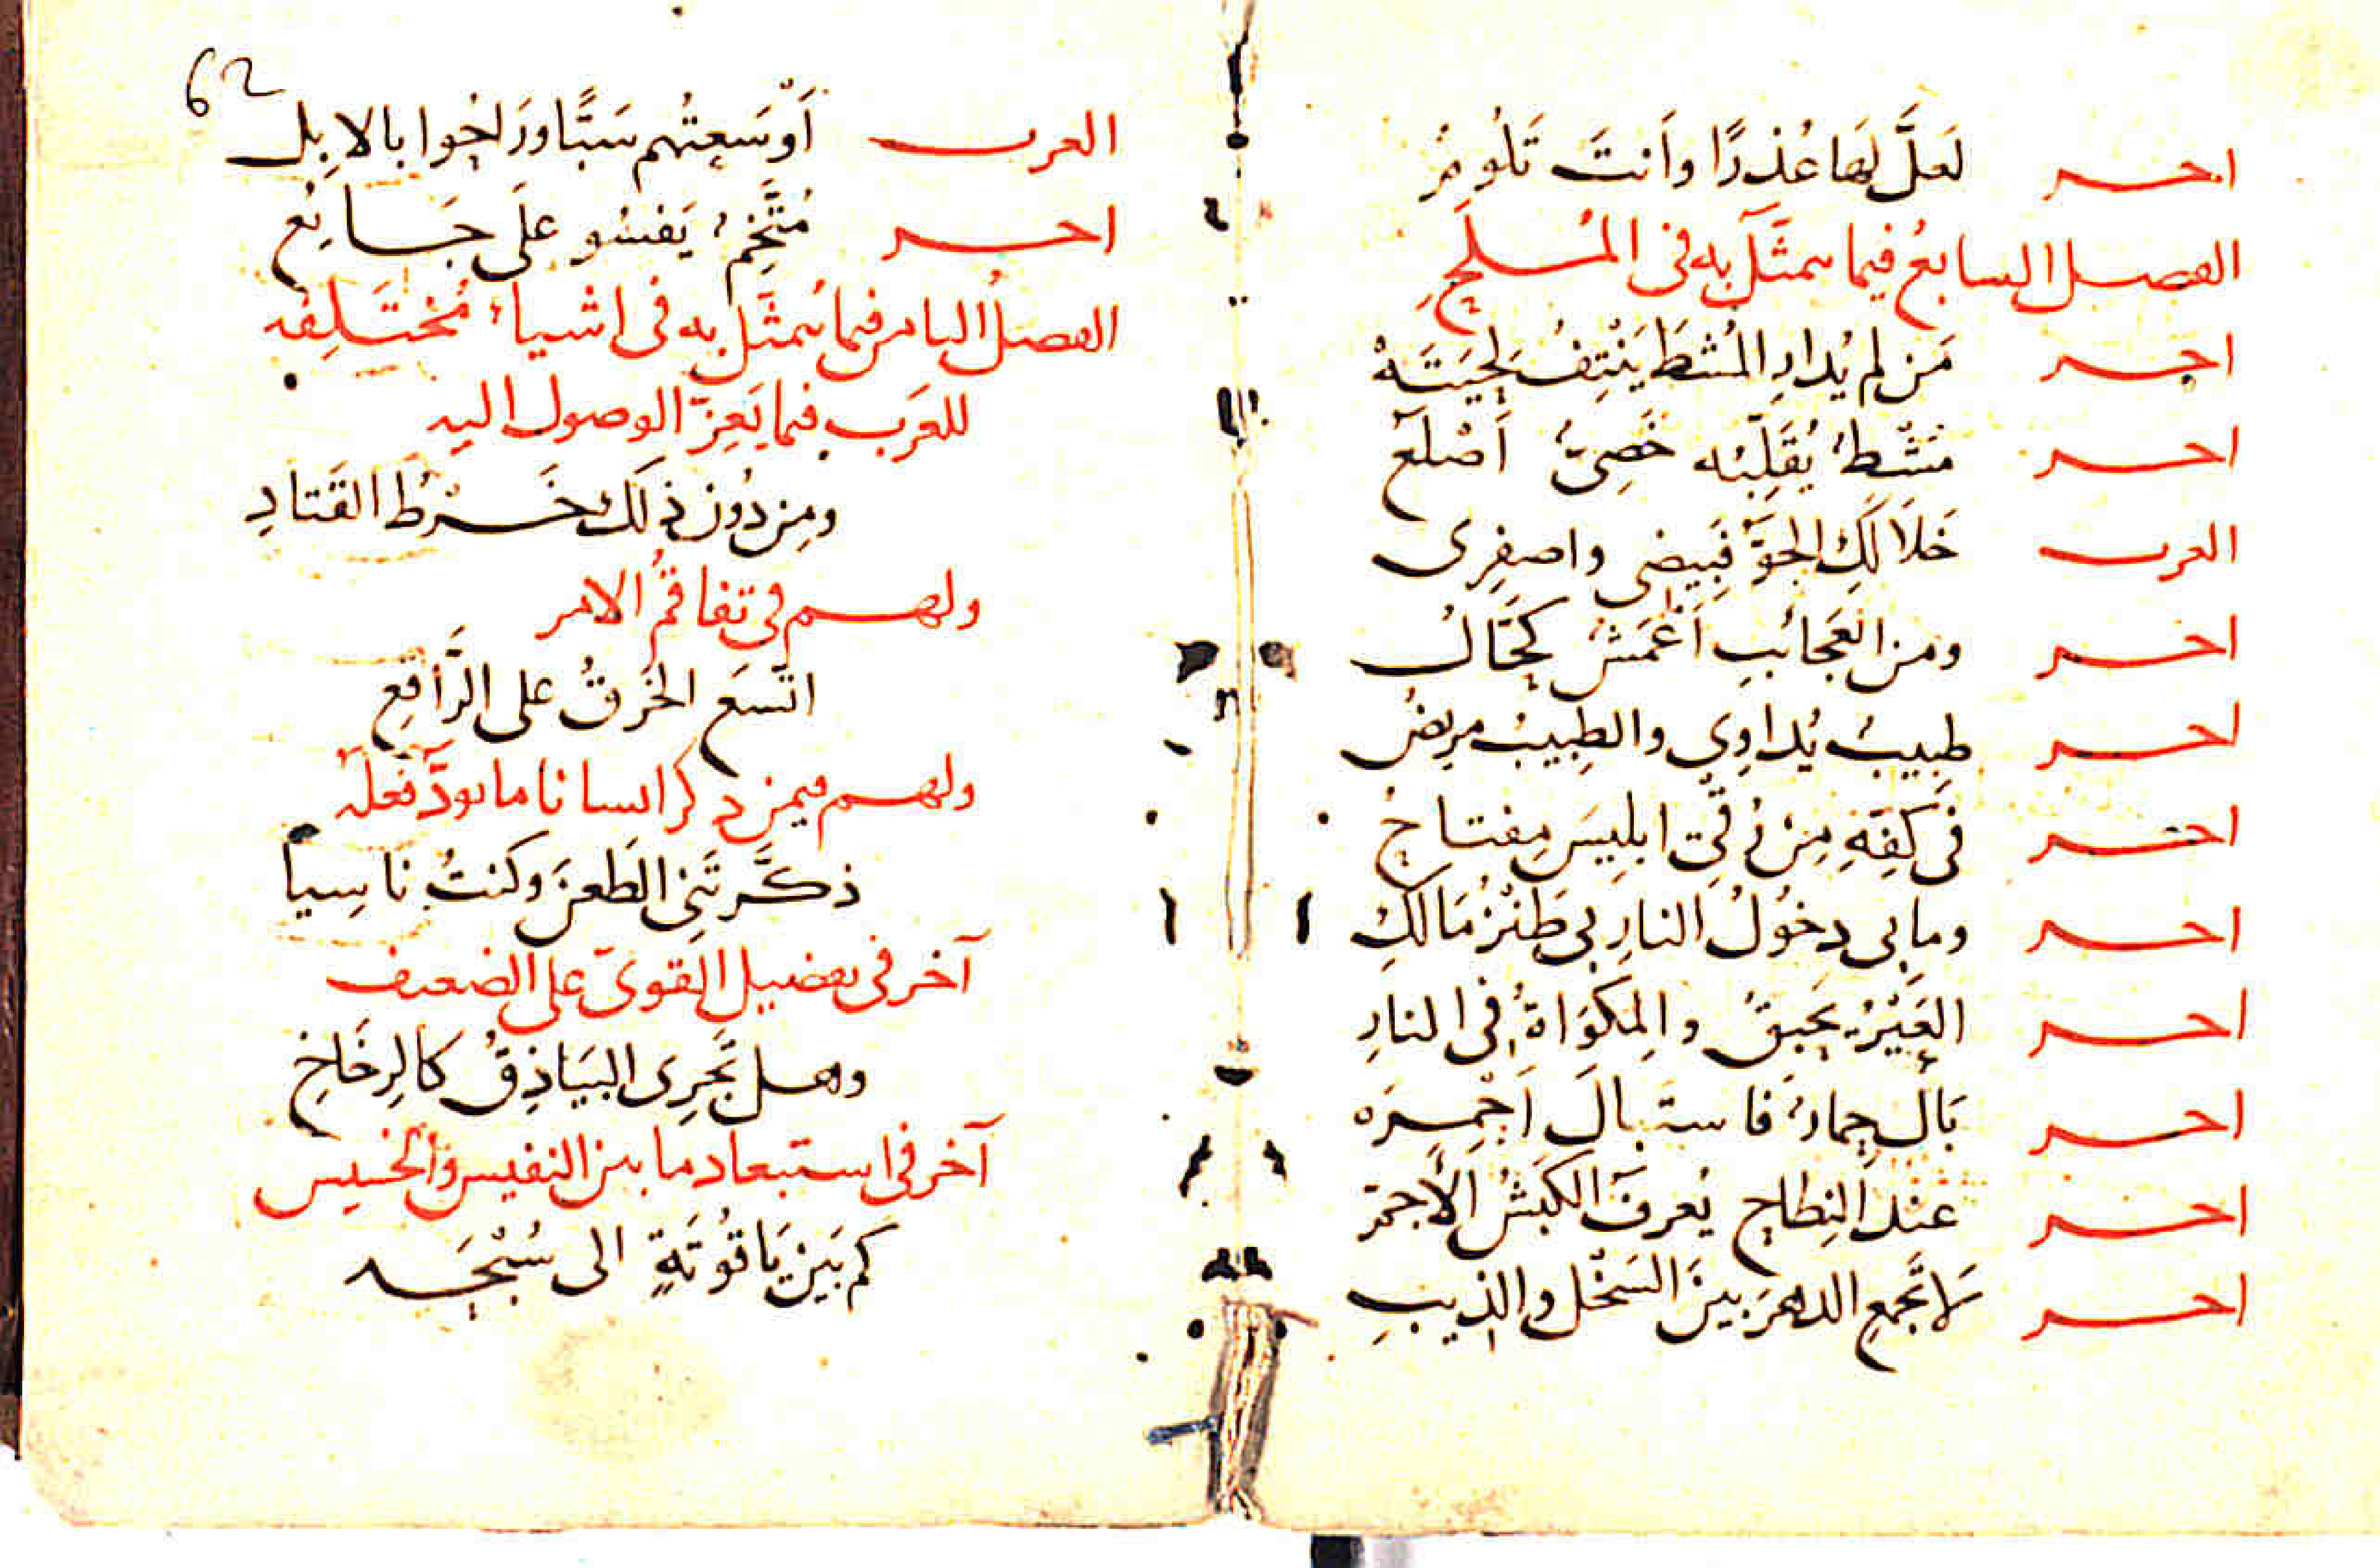 اخر لَعلَّ لهَا عُذرًا وأنتَ تَلُومُ
الفصل السابعُ فيما يتمثَّل به فى المُلَحِ
اخر مَن لم يُدارِ المُشطَ يَنْتِفُ لِحيَتَهُ
اخر مُشْطٌ يُقَلِّبُه خَصِىٌّ أَصْلَع
العرب خَلَا لَكِ الجَوُّ فَبِيضِى واصفِرِى
اخر ومن العَجائبِ أعْمَشٌ كَحَّالُ
اخر طبِيبٌ يُداوِى والطبِيبُ مريضُ
اخر فى كفِّهِ مِنْ رُقَى ابلِيسَ مِفتاحُ
اخر وما بى دخُولُ النارِ بى طَنْزُ مَالكِ
اخر العَيْرُ يَحبقُ والمِكوَاةُ فى النارِ
اخر بَال حِمارٌ فاستبالَ أَحْمِرَه
اخر عنْدَ النِطاحِ يُعرفُ الكَبشُ الأجمّ
اخر لا تجمعِ الدهرَ بينَ السَخْلِ والذيبِ
62
العرب أَوْسَعتُهم سَبًّا ورَاحُوا بالابِل
اخر مُتَّخِمٌ يَفسُو علَى جَائعِ
الفصلُ الثامن فيما يُتمثَّل به فى اشياءٍ مُختَلِفه
للعَرَب فيما يَعِزّ الوصول اليه
ومِن دُون ذلَك خَرْطُ القَتادِ
ولهم فى تفاقُمُ الامر
اتَّسَع الخَرقُ على الرَّاقعِ
ولهم فيمن ذكر انسانا ما يودّ فعلَه
ذكَّرتَنِى الطَعنَ وكنتُ ناسِيا
آخر فى تفضيل القوىّ على الضعيف
وهل تَجرِى البَيَاذِقُ كالرِخَاخِ
آخر فى استبعاد ما بين النفيس والخسيس
كم بَين يَاقُوتَةٍ الى سُبْجَه